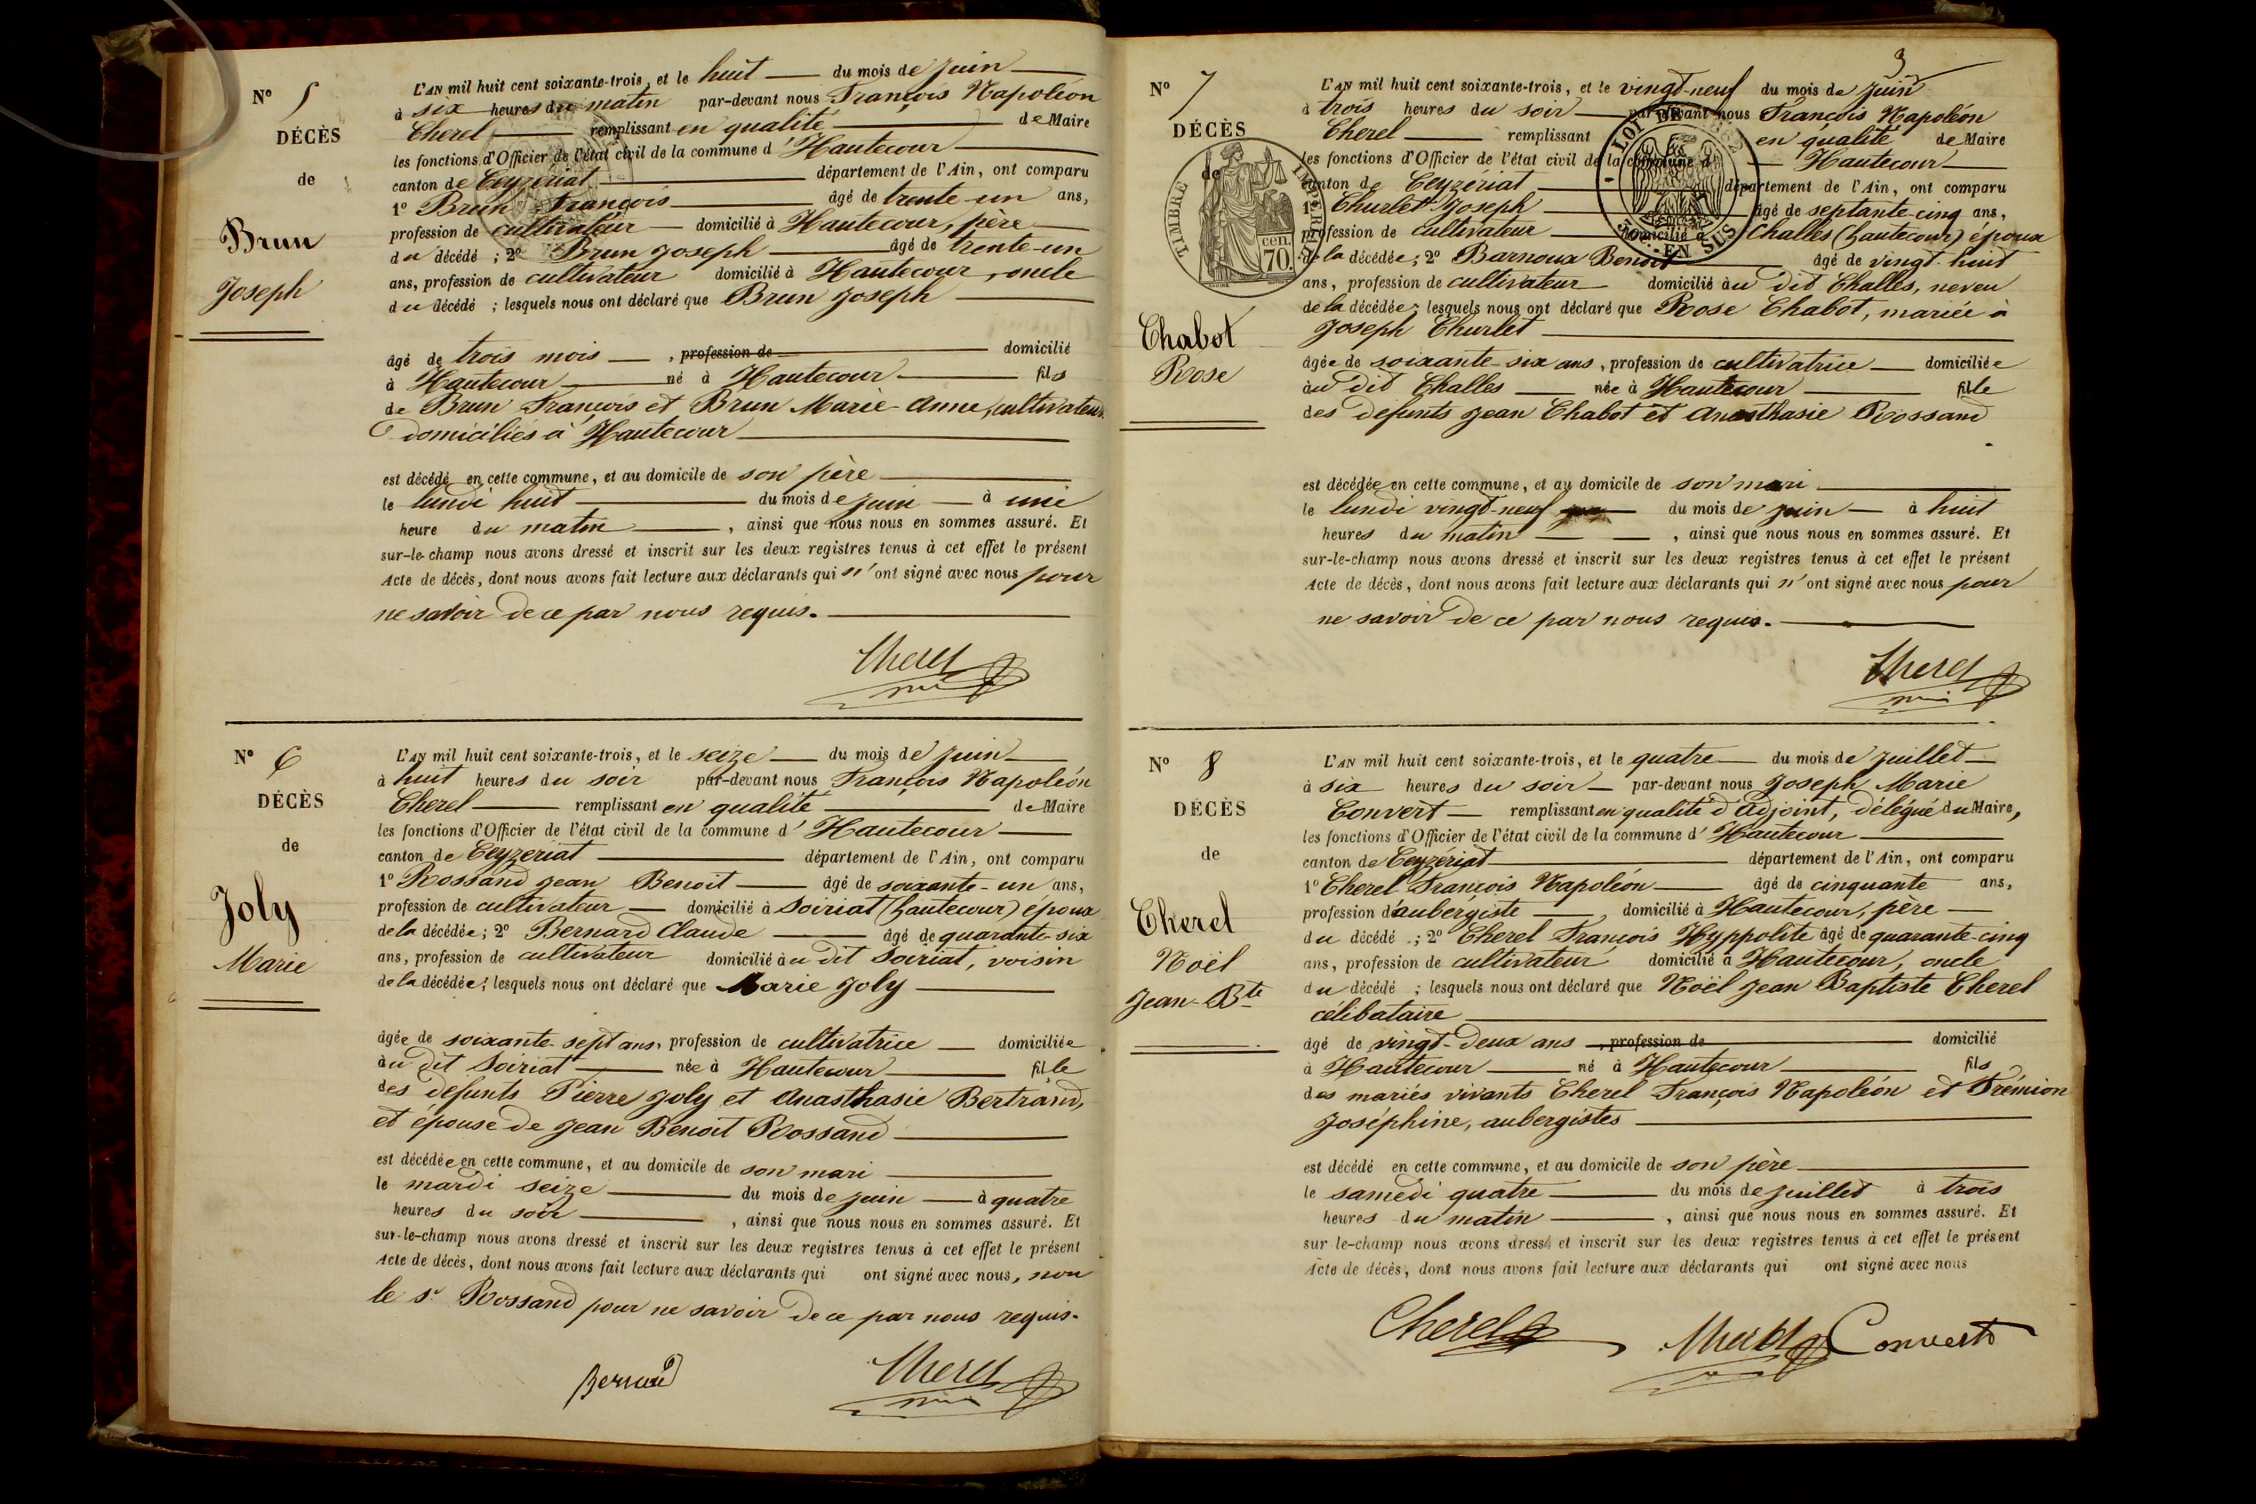 N° 5
DÉCÈS
de
Brun
Joseph
L'AN mil huit cent soixante-trois, et le huit du mois de juin
à six heures du matin par-devant nous François Napoléon
Cherel remplissant en qualité de Maire
les fonctions d'Officier de l'état civil de la commune d'Hautecour
canton de Ceyzériat département de l'Ain, ont comparu
1° Brun François âgé de trente-un ans,
profession de cultivateur domicilié à Hautecour, père
du décédé ; 2° Brun Joseph âgé de trente-un
ans, profession de cultivateur domicilié à Hautecour, oncle
du décédé ; lesquels nous ont déclaré que Brun Joseph
âgé de trois mois , profession de domicilié
à Hautecour né à Hautecour fils
de Brun François et Brun Marie-Anne, cultivateurs
domiciliés à Hautecour
est décédé en cette commune, et au domicile de son père
le lundi huit du mois de juin à une
heure du matin , ainsi que nous nous en sommes assuré. Et
sur-le-champ nous avons dressé et inscrit sur les deux registres tenus à cet effet le présent
Acte de décès, dont nous avons fait lecture aux déclarants qui n'ont signé avec nous pour
ne savoir de ce par nous requis.
Cherel
N° 6
DÉCÈS
de
Joly
Marie
L'AN mil huit cent soixante-trois, et le seize du mois de juin
à huit heures du soir par-devant nous François Napoléon
Cherel remplissant en qualité de Maire
les fonctions d'Officier de l'état civil de la commune d'Hautecour
canton de Ceyzeriat département de l'Ain, ont comparu
1° Rossand Jean Benoit âgé de soixante-un ans,
profession de cultivateur domicilié à Soiriat (hautecour) époux
de la décédée ; 2° Bernard Claude âgé de quarante-six
ans, profession de cultivateur domicilié au dit Soiriat, voisin
de la décédée ; lesquels nous ont déclaré que Marie Joly
âgée de soixante-sept ans, profession de cultivatrice domiciliée
au dit Soiriat née à Hautecour fille
des défunts Pierre Joly et Anasthasie Bertrand,
et épouse de Jean Benoit Rossand
est décédée en cette commune, et au domicile de son mari
le mardi seize du mois de juin à quatre
heures du soir , ainsi que nous nous en sommes assuré. Et
sur-le-champ nous avons dressé et inscrit sur les deux registres tenus à cet effet le présent
Acte de décès, dont nous avons fait lecture aux déclarants qui ont signé avec nous, non
le sr Rossand pour ne savoir de ce par nous requis.
Bernard Cherel
3
N° 7
DÉCÈS
de
Chabot
Rose
TIMBRE IMPÉRIAL
cen. 70.
LOI DE 1862
EN SUS
L'AN mil huit cent soixante-trois, et le vingt-neuf du mois de juin
à trois heures du soir par-devant nous François Napoléon
Cherel remplissant en qualité de Maire
les fonctions d'Officier de l'état civil de la commune d'Hautecour
canton de Ceyzériat département de l'Ain, ont comparu
1° Churlet Joseph âgé de septante-cinq ans,
profession de cultivateur domicilié à Challes (hautecour) époux
de la décédée ; 2° Barnoux Benoit âgé de vingt-huit
ans, profession de cultivateur domicilié au dit Challes, neveu
de la décédée ; lesquels nous ont déclaré que Rose Chabot, mariée à
Joseph Churlet
âgée de soixante-six ans, profession de cultivatrice domiciliée
au dit Challes née à Hautecour fille
des défunts Jean Chabot et Anasthasie Rossand
est décédée en cette commune, et au domicile de son mari
le lundi vingt-neuf du mois de juin à huit
heures du matin , ainsi que nous nous en sommes assuré. Et
sur-le-champ nous avons dressé et inscrit sur les deux registres tenus à cet effet le présent
Acte de décès, dont nous avons fait lecture aux déclarants qui n'ont signé avec nous pour
ne savoir de ce par nous requis.
Cherel
N° 8
DÉCÈS
de
Cherel
Noël
Jean-Bte
L'AN mil huit cent soixante-trois, et le quatre du mois de juillet
à six heures du soir par-devant nous Joseph Marie
Convert remplissant en qualité d'adjoint, délégué du Maire,
les fonctions d'Officier de l'état civil de la commune d'Hautecour
canton de Ceyzériat département de l'Ain, ont comparu
1° Cherel François Napoléon âgé de cinquante ans,
profession d'aubergiste domicilié à Hautecour, père
du décédé ; 2° Cherel François Hyppolite âgé de quarante-cinq
ans, profession de cultivateur domicilié à Hautecour, oncle
du décédé ; lesquels nous ont déclaré que Noël Jean Baptiste Cherel
célibataire
âgé de vingt-deux ans , profession de domicilié
à Hautecour né à Hautecour fils
des mariés vivants Cherel François Napoléon et Frémion
Joséphine, aubergistes
est décédé en cette commune, et au domicile de son père
le samedi quatre du mois de juillet à trois
heures du matin , ainsi que nous nous en sommes assuré. Et
sur le-champ nous avons dressé et inscrit sur les deux registres tenus à cet effet le présent
Acte de décès, dont nous avons fait lecture aux déclarants qui ont signé avec nous
Cherel Cherel Convert